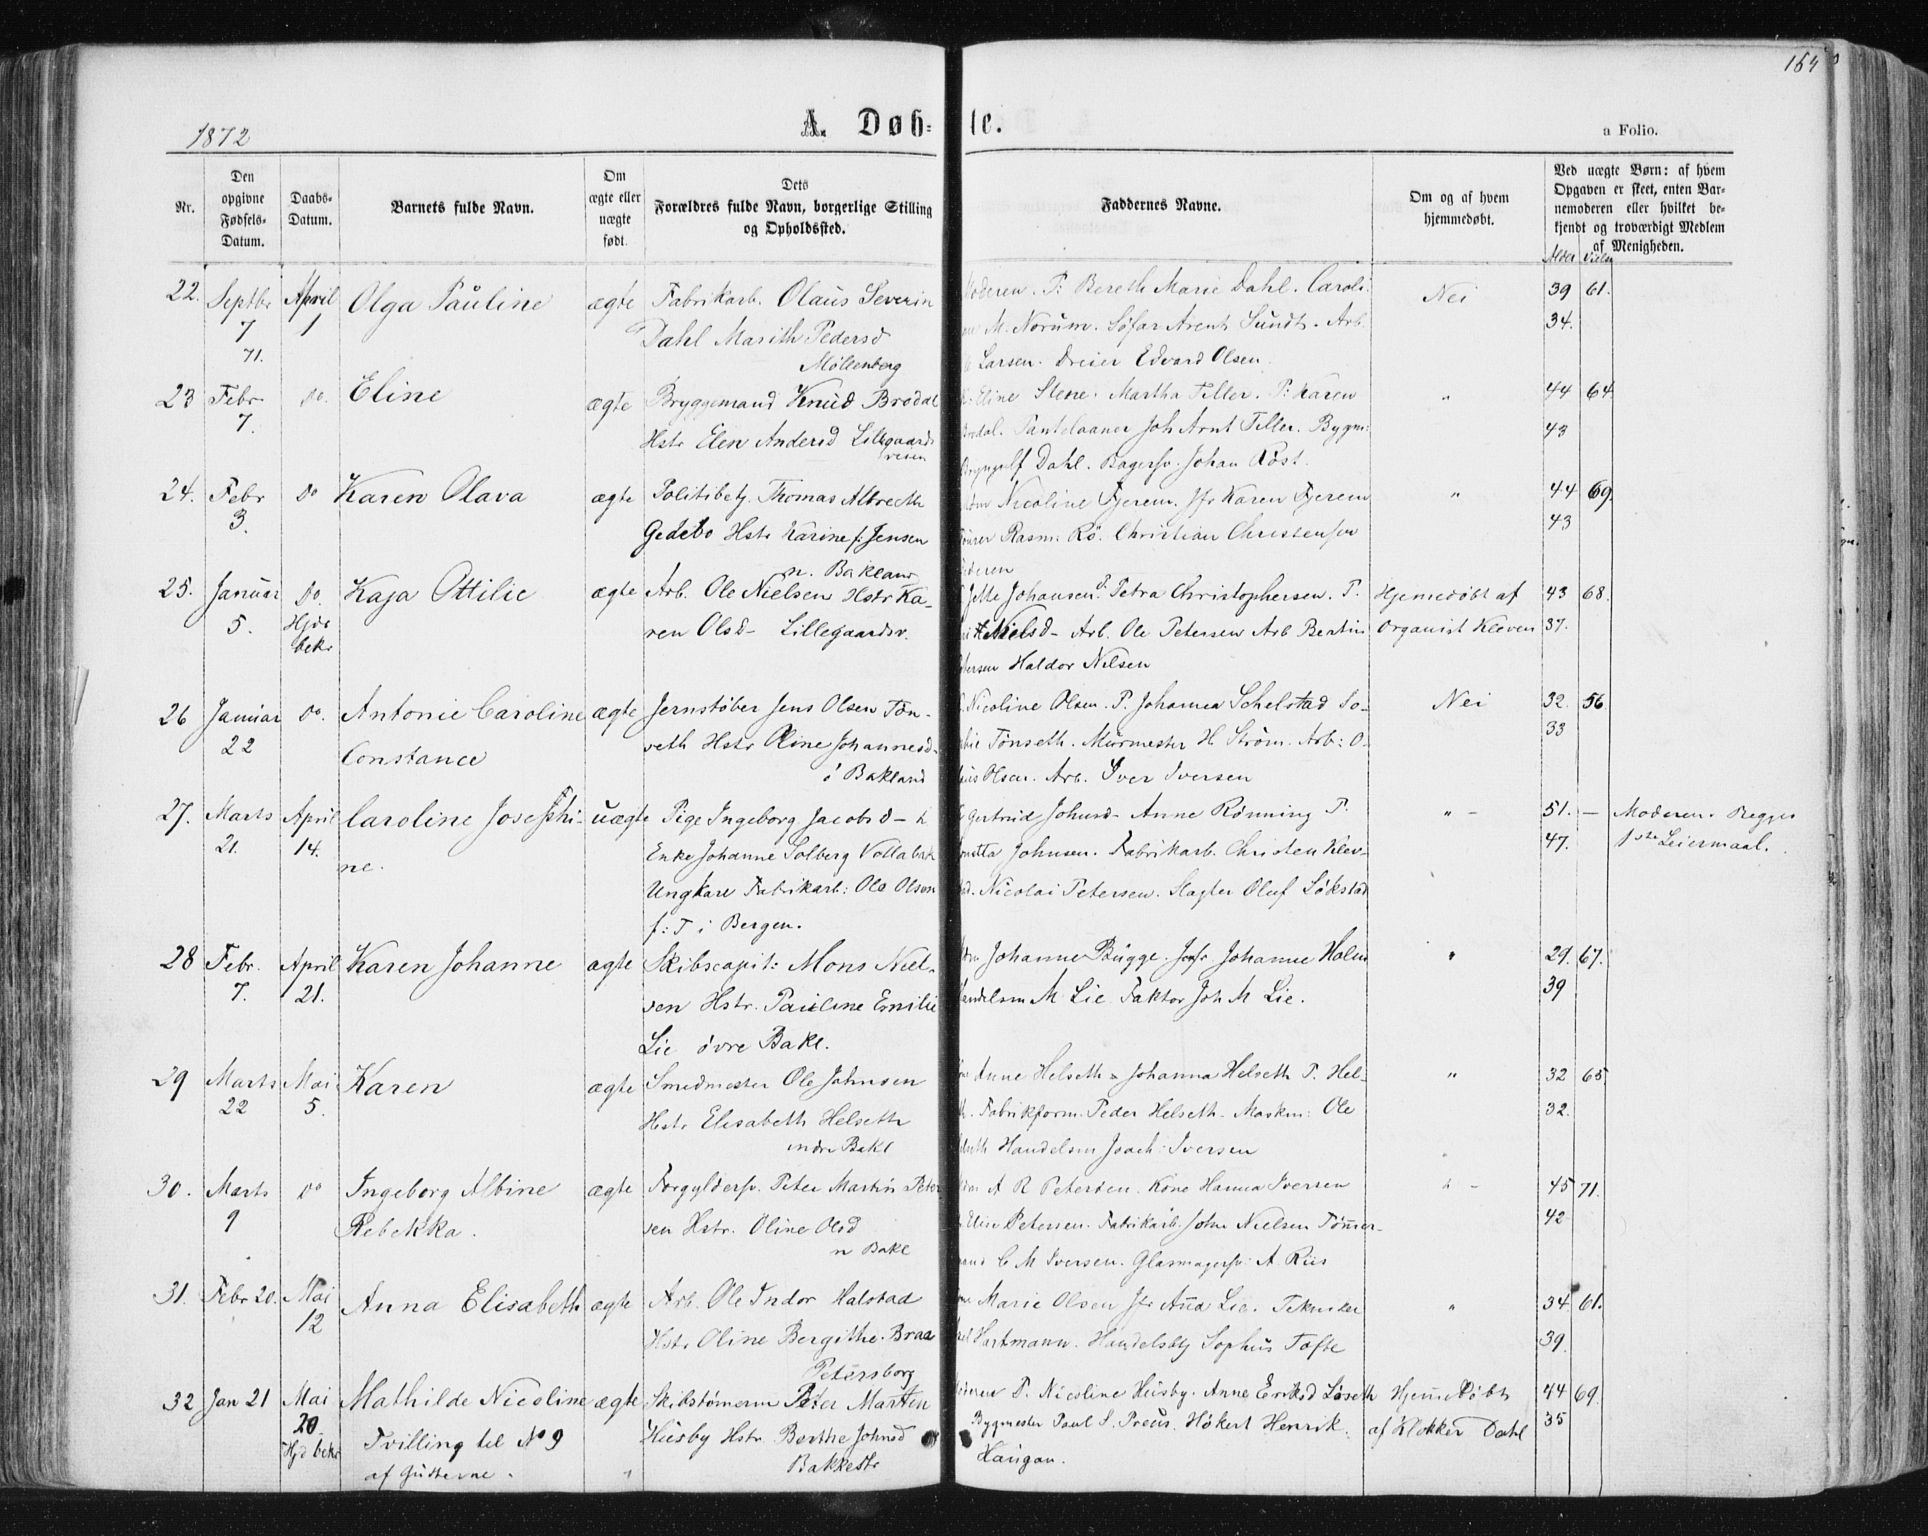 164
1872
A. Døb=te.
a Folio.
Nr.
Den opgivne Fødsels-Datum.
Daabs-Datum.
Barnets fulde Navn.
Om ægte eller uægte født.
Dets Forældres fulde Navn, borgerlige Stilling og Opholdssted.
Faddernes Navne.
Om og af hvem hjemmedøbt.
Ved uægte Børn: af hvem Opgaven er skeet, enten Barnemoderen eller hvilket bekjendt og troværdigt Medlem af Menigheden.
Alder Vielse
22. Septbr April Olga Pauline ægte Fabrikarb. Olaus Severin Moderen. P: Bereth Marie Dahl. Caroli- Nei 39 61.
7 1 Dahl Marith Pedersd M. Norum. Søfar Arent Sundt. Arb. 34.
71. Møllenberg Larsen. Dreier Edvard Olsen
23 Febr do. Eline ægte Bryggemand Knud Brødal Eline Stene. Martha Tiller. P: Karen " 44 64
7. Hstr Elen Andersd Lillegaards Brødal. Pantelaaner Joh Arnt Tiller. Bygm: 43
veien Dahl. Bagersv. Johan Rost.
24. Febr do Karen Olava ægte Politibetj. Thomas Albrecth Nicoline Fjerem. Jfr Karen Fjerem " 44 69.
3. Gedebo Hstr Karine f: Jensen Rasm: Rø. Christian Christensen 43
n. Bakland Faderen
25. Januar do. Kaja Ottilie ægte Arb. Ole Nielsen Hstr Ka- Jette Johansen P. Petra Christophersen. P. Hjemedøbt af 43 68.
5. Hjdb ren Olsd - Lillegaardsv. Nielsd - Arb. Ole Petersen Arb Bertin Organist Kleven 37.
bekr Petersen Haldor Nilsen
26 Januar do. Antonie Caroline ægte Jernstøber Jens Olsen Tøn- Nicoline Olsen. P. Johanna Schelstad So- Nei 32. 56
22 Constance seth Hstr Oline Johannesd- phie Tønseth. Murmester H Strøm. Arb: O- 33
ø Bakland laus Olsen. Arb. Iver Iversen
27. Marts April Caroline Josephi- uægte Pige Ingeborg Jacobsd - Gertrud Johnsd - Anne Rønning P. " - 51. - Moderen. Begges
21. 14. ne. Enke Johanne Solberg Vollabak Johnsen. Fabrikarb. Christen Klev- 47. 1ste Leiermaal.
Ungkarl Fabrikarb: Ole Olsen Nicolai Petersen. Slagter Oluf Løkstad
f: T i Bergen.
28 Febr. April Karen Johanne ægte Skibscapit: Mons Niel- Johanne Bugge. Jfr Johanne Holm " 29. 67.
7. 21. sen Hstr. Pauline Emilie Handelsm M Lie Faktor Joh M Lie. 39
Lie øvre Bakl.
29 Marts Mai Karen ægte Smedmester Ole Johnsen Anne Helseth - Johanna Helseth P. Hel- " 32 65
22 5. Hstr Elisabeth Helseth Fabrikform. Peder Helseth. Maskm: Ole 32.
indre Bakl Helseth Handelsm Joach: Iversen
30. Marts do Ingeborg Albine ægte Forgyldersv. Peter Martin Peter A R Petersen. Kone Hanna Iversen " - 45 71.
9 Rebekka. sen Hstr. Oline Olsd Petersen. Fabrikarb. John Nielsen Tømer- 42
n Bakl mand C M Iversen. Glasmagersv: A Riis
31. Febr 20. Mai Anna Elisabeth ægte Arb. Ole Indor Halstad Marie Olsen Jfr Ana Lie. Tekniker " 34 61.
12 Hstr Oline Bergithe Braa Hartmann. Handelsbtj Sophus Tofte 39.
Petersborg
32 Jan 21 Mai Mathilde Nicoline ægte Skibstømerm Peter Martin Moderen P. Nicoline Husby. Anne Eriksd Løseth Hjemedøbt 44 69.
20. Tvilling til No 9 Husby Hstr. Berthe Johnsd Bygmester Paul S. Preus. Høkert Henrik af Klokker Dahl 35
Hjd bekr af Gutterne. Bakkestr Haugan.